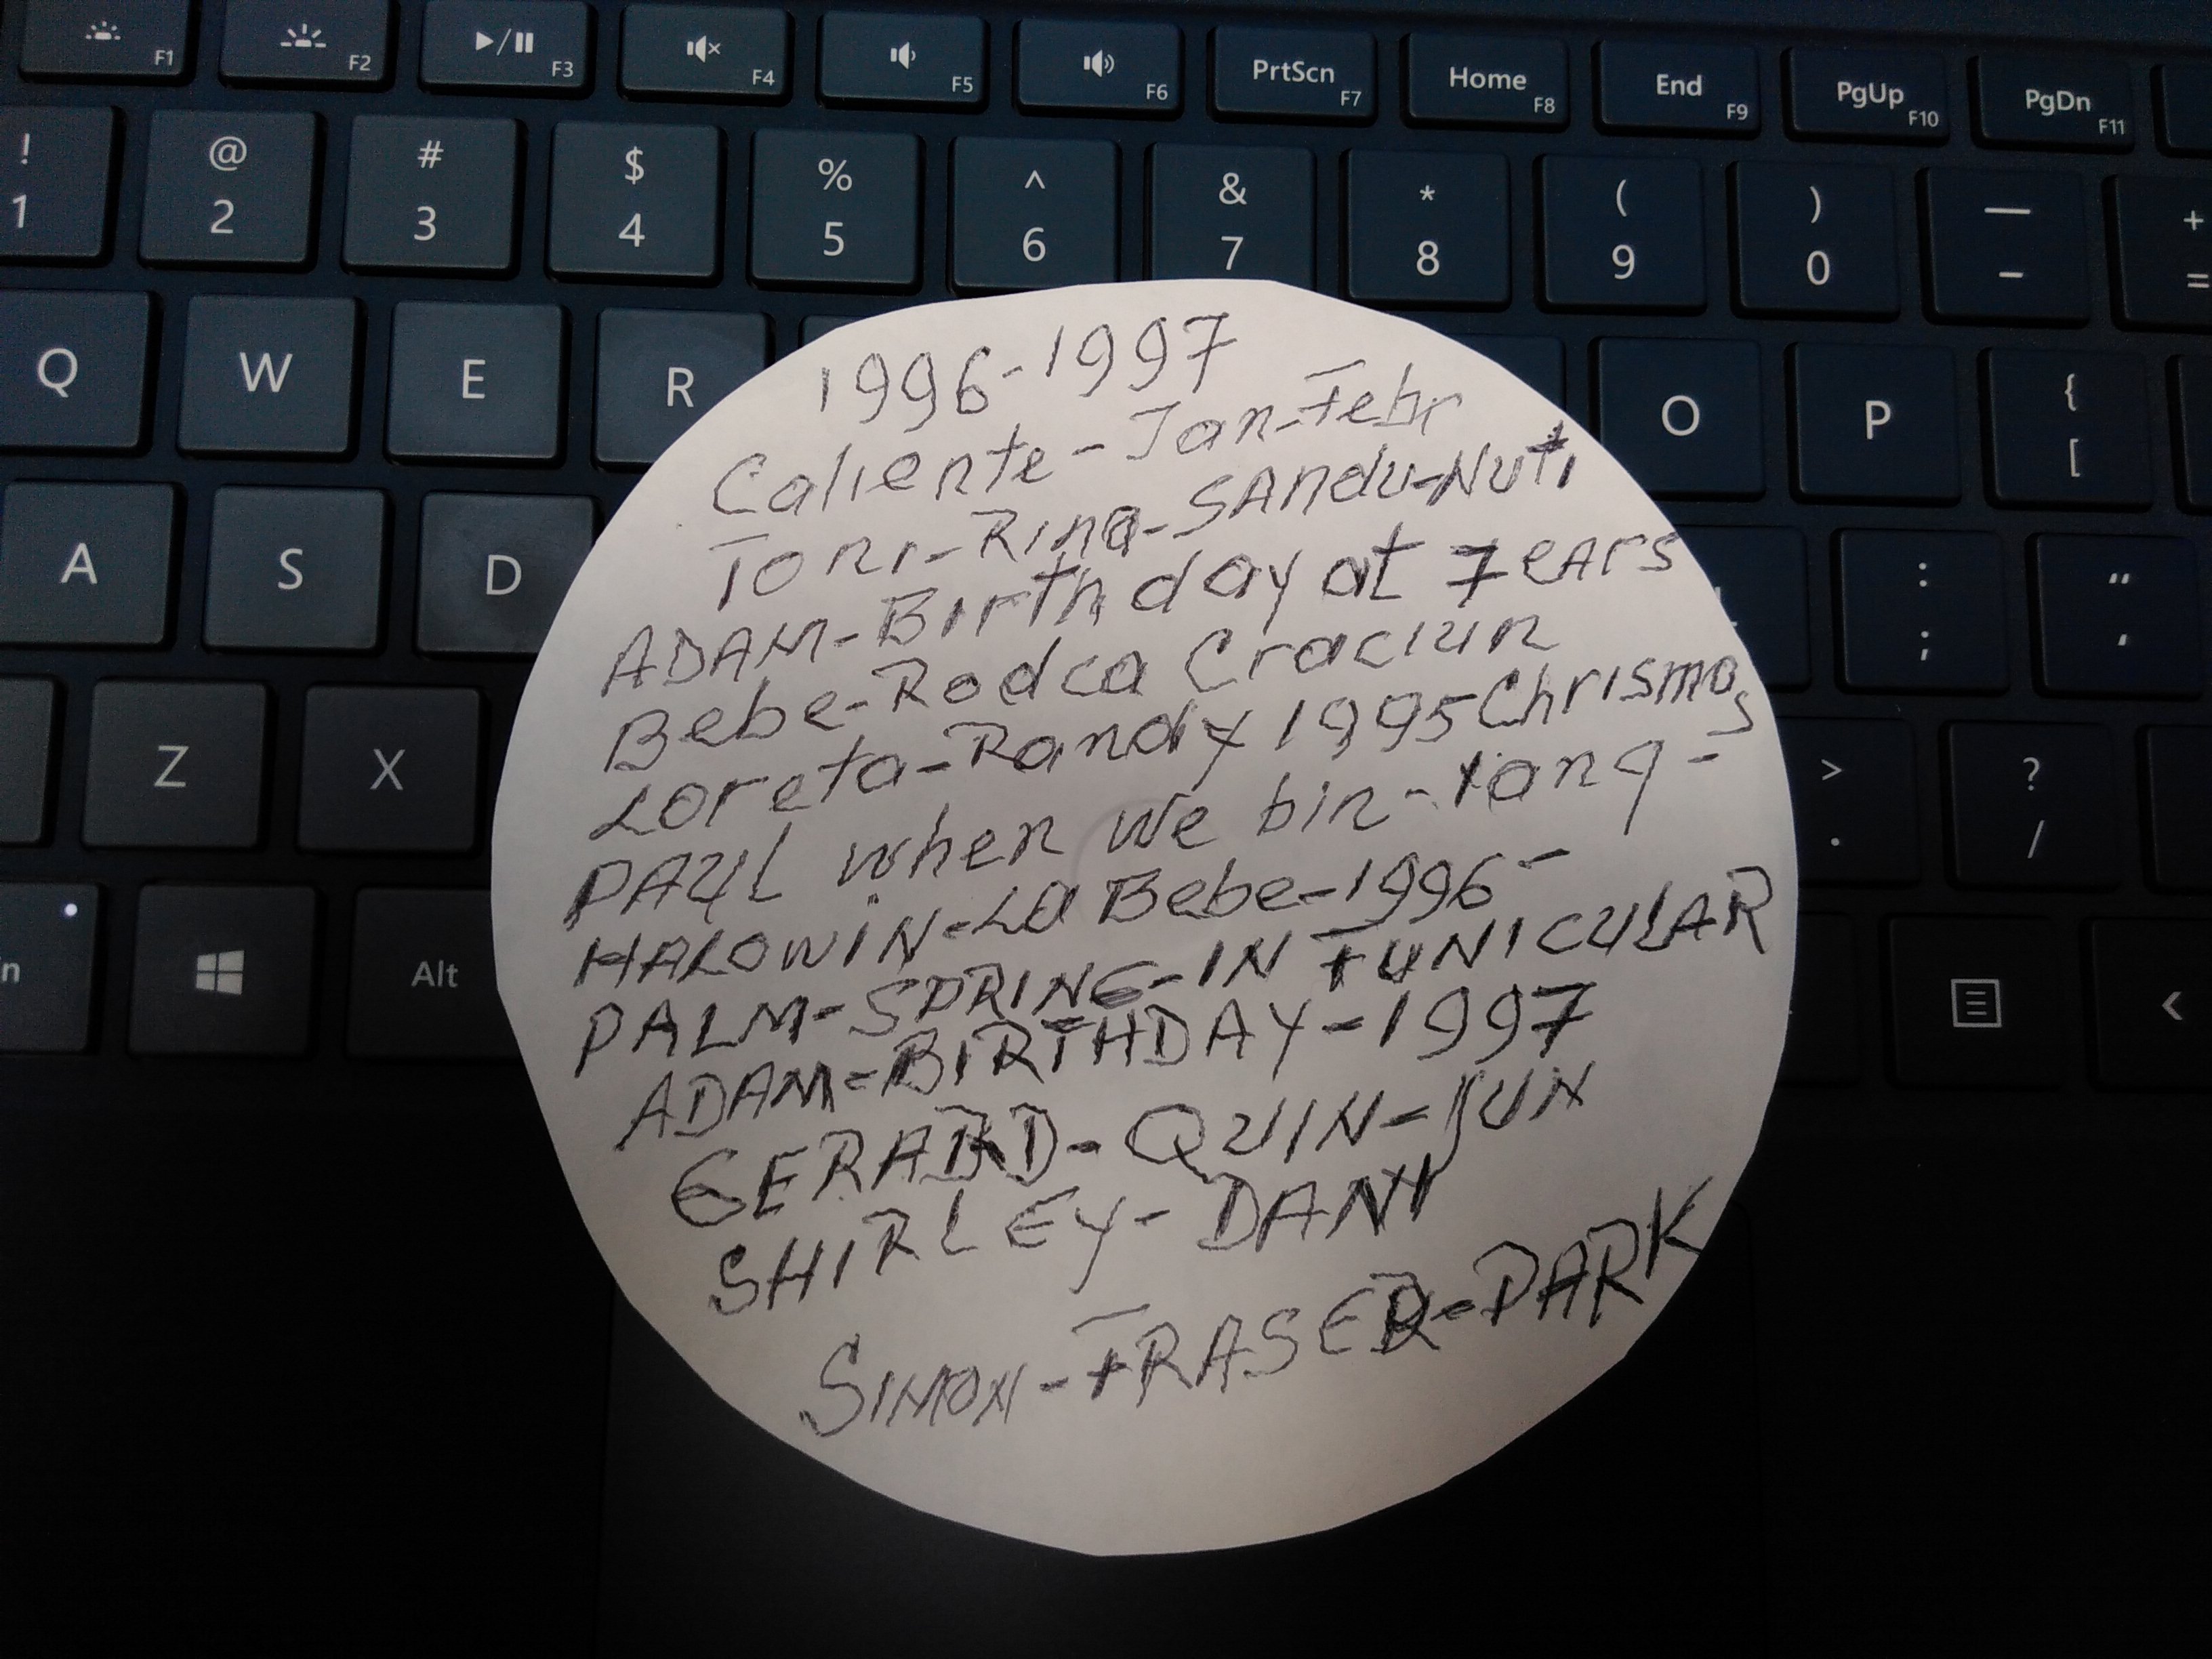 F1 F2 F3 F4 F5 F6 PrtScn F7 Home F8 End F9 PgUp F10 PgDn F11
! 1 @ 2 # 3 $ 4 % 5 ^ 6 & 7 * 8 ( 9 ) 0 — - + =
Q W E R O P { [
A S D : ; " '
Z X > . ? /
Alt <
1996-1997
Caliente-Jan-Febr
Toni-Rina-SAndu-Nuti
ADAM-Birthday at 7ears
Bebe-Rodca Craciun
Loreta-Randy 1995 Chrismas
PAUL when we bin-yong-
HALOWIN-La Bebe-1996-
PALM-SPRING-IN FUNICULAR
ADAM-BIRTHDAY-1997
GERARD-QUIN-JUN
SHIRLEY-DANY
SIMON-FRASER-PARK